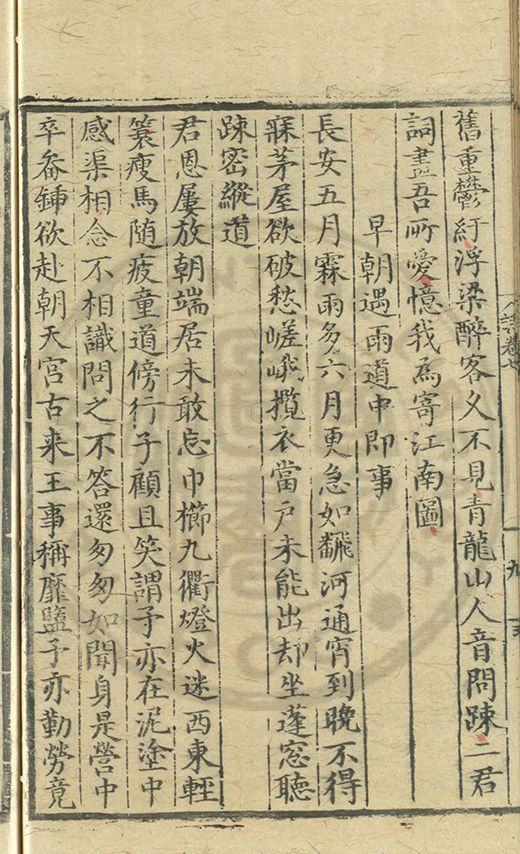 舊重鬱紆浮梁醉客久不見青龍山人音問踈二君
詞畫吾所愛憶我為寄江南圖
早朝遇雨道中即事
長安五月霖雨多六月更急如飜河通宵到曉不得
寐茅屋欲破愁嵯峨攬衣當戶未能出却坐蓬窓聽
踈密縱道
君恩屢放朝端居未敢忘巾櫛九衢燈火迷西東輕
簑瘦馬隨疲童道傍行子顧且笑謂予亦在泥塗中
感渠相念不相識問之不答還匆匆如聞身是營中
卒畚鍤欲赴朝天宮古来王事稱靡盬予亦勤勞竟
卷七
九